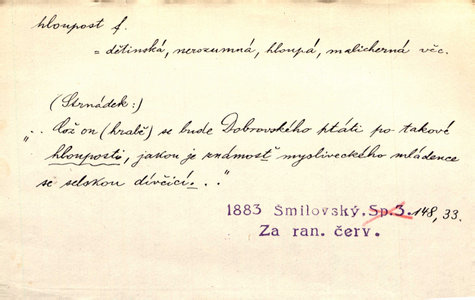 hloupost f.
= dětinská, nerozumná, hloupá, malicherná věc.
(Strnádek:)
„.. Což on (hrabě) se bude Dobrovského ptáti po takové
hlouposti, jakou je známosť mysliveckého mládence
se selskou dívčicí..."
1883 Šmilovský. Sp. 3. 148, 33.
Za ran. červ.